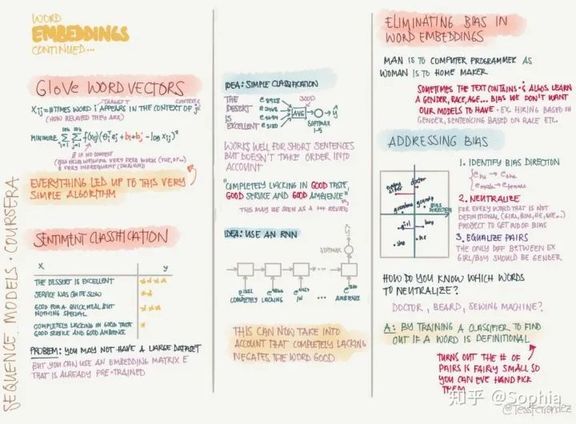 WORD
EMBEDDINGS
CONTINUED...
GloVe WORD VECTORS
TARGET
CONTEXT
Xij = #TIMES WORD i APPEARS IN THE CONTEXT OF j
(HOW RELATED THEY ARE)
MINIMIZE
EVERYTHING LED UP TO THIS VERY
SIMPLE ALGORITHM
SENTIMENT CLASSIFICATION
X Y
THE DESSERT IS EXCELLENT
SERVICE WAS QUITE SLOW
GOOD FOR A QUICK MEAL BUT
NOTHING SPECIAL
COMPLETELY LACKING IN GOOD TASTE
GOOD SERVICE AND GOOD AMBIENCE
PROBLEM: YOU MAY NOT HAVE A LARGE DATASET
BUT YOU CAN USE AN EMBEDDING MATRIX E
THAT IS ALREADY PRE-TRAINED
SEQUENCE MODELS · COURSERA
IDEA: SIMPLE CLASSIFICATION
THE
DESSERT
IS
EXCELLENT
AVG
SOFTMAX
1-5
WORKS WELL FOR SHORT SENTENCES
BUT DOESN'T TAKE ORDER INTO
ACCOUNT
"COMPLETELY LACKING IN GOOD TASTE,
GOOD SERVICE AND GOOD AMBIENCE"
THIS MAY BE SEEN AS A +++ REVIEW
IDEA: USE AN RNN
SOFTMAX
COMPLETELY LACKING IN ... AMBIENCE
THIS CAN NOW TAKE INTO
ACCOUNT THAT COMPLETELY LACKING
NEGATES THE WORD GOOD
ELIMINATING BIAS IN
WORD EMBEDDINGS
MAN IS TO COMPUTER PROGRAMMER AS
WOMAN IS TO HOME MAKER
GENDER, RACE, AGE... BIAS WE DON'T WANT
OUR MODELS TO HAVE · EX. HIRING BASED ON
GENDER, SENTENCING BASED ON RACE ETC.
ADDRESSING BIAS
1. IDENTIFY BIAS DIRECTION
2. NEUTRALIZE
FOR EVERY WORD THAT IS NOT
DEFINITIONAL (GIRL, BOY, HE, SHE...)
PROJECT TO GET RID OF BIAS
3. EQUALIZE PAIRS
THE ONLY DIFF BETWEEN EX
GIRL/BOY SHOULD BE GENDER
HOW DO YOU KNOW WHICH WORDS
TO NEUTRALIZE?
DOCTOR, BEARD, SEWING MACHINE?
A: BY TRAINING A CLASSIFIER TO FIND
OUT IF A WORD IS DEFINITIONAL
TURNS OUT THE # OF
PAIRS IS FAIRLY SMALL SO
YOU CAN EVEN HAND PICK
THEM
知乎 @Sophia
@TessFerrandez